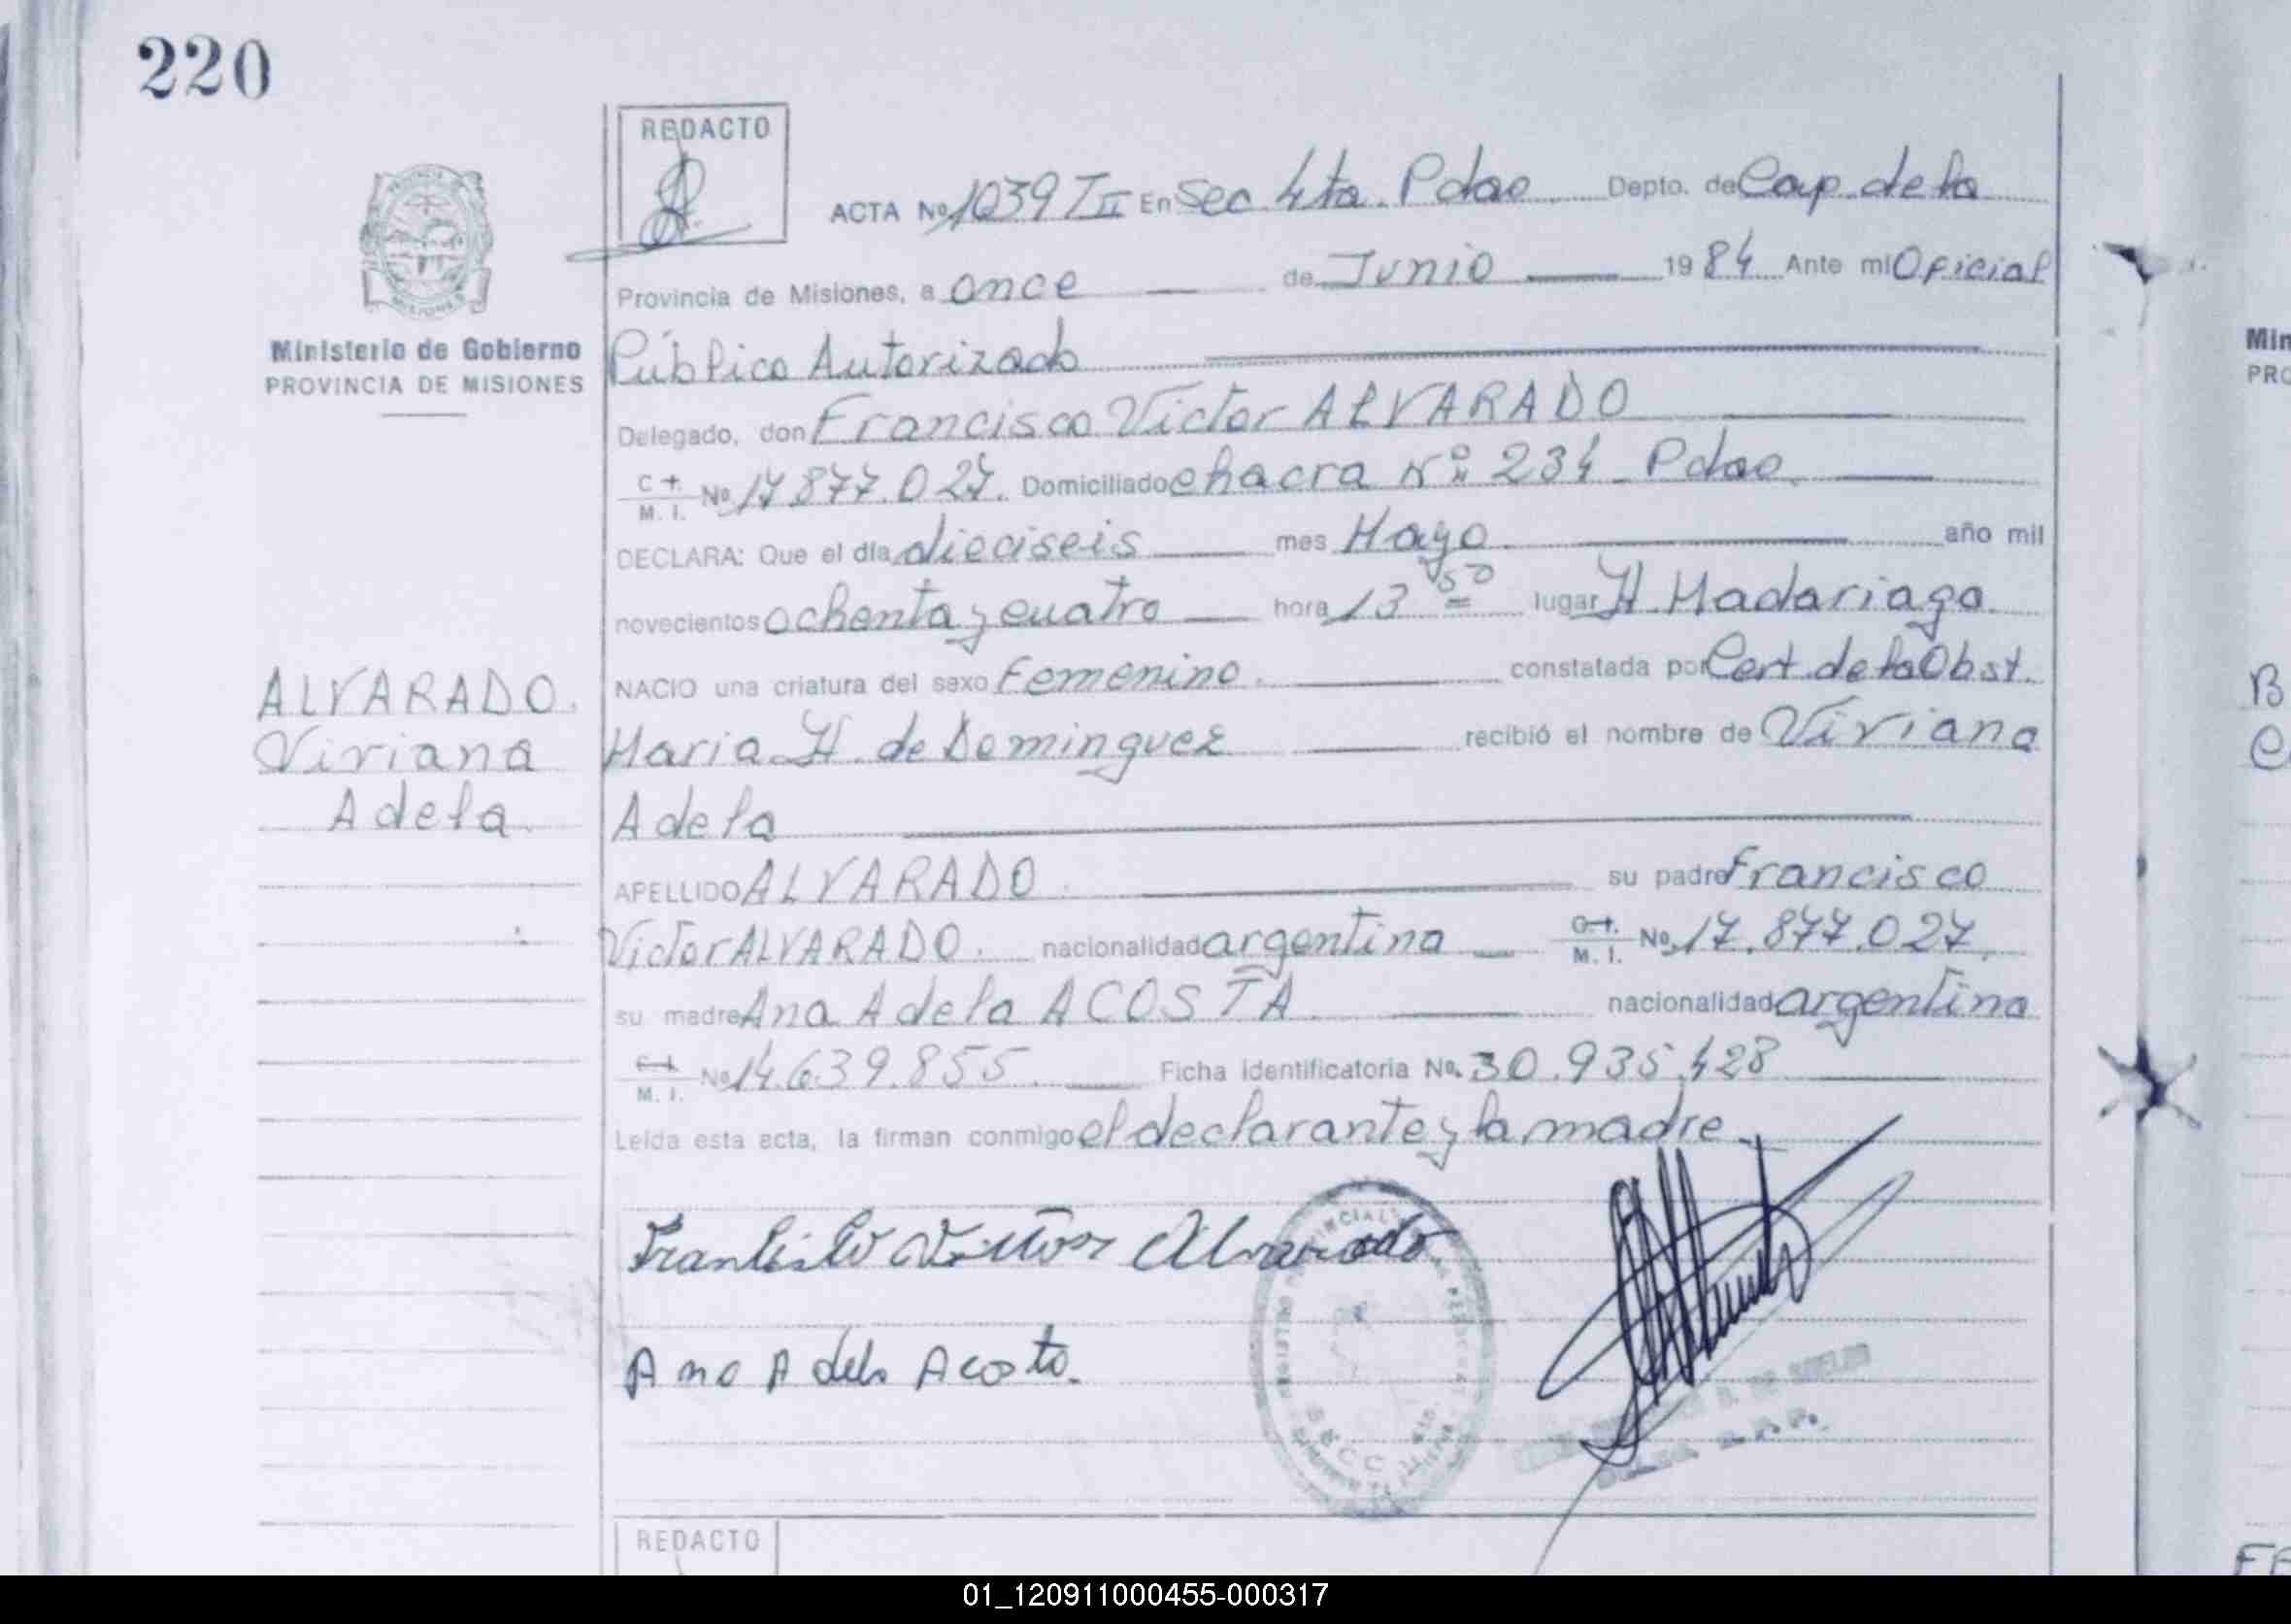 220
REDACTO
ACTA No 1039 T II En Sec 4ta. Pdas Depto. de Cap. de la
Provincia de Misiones, a once de Junio 1984 Ante mi Oficial
Ministerio de Gobierno
PROVINCIA DE MISIONES
Público Autorizado
Delegado, don Francisco Victor ALVARADO
C.I. M. I. No 17.877.027. Domiciliado chacra Nº 234 Pdas.
DECLARA: Que el día dieciseis mes Mayo año mil
novecientos ochenta y cuatro hora 13 50 lugar H. Madariaga
NACIO una criatura del sexo Femenino. constatada por Cert. de la Obst.
Maria H. de Dominguez recibió el nombre de Viviana
Adela
ALVARADO.
Viviana
Adela
APELLIDO ALVARADO. su padre Francisco
Victor ALVARADO. nacionalidad argentina C.I. M. I. No. 17.877.027.
su madre Ana Adela ACOSTA nacionalidad argentina
C.I. M. I. No 14.639.855 Ficha identificatoria No. 30.935.428
Leída esta acta, la firman conmigo el declarante y la madre.
Francisco Victor Alvarado
Ana Adela Acosta.
SECC
REDACTO
Min
PRO
B
01_120911000455-000317